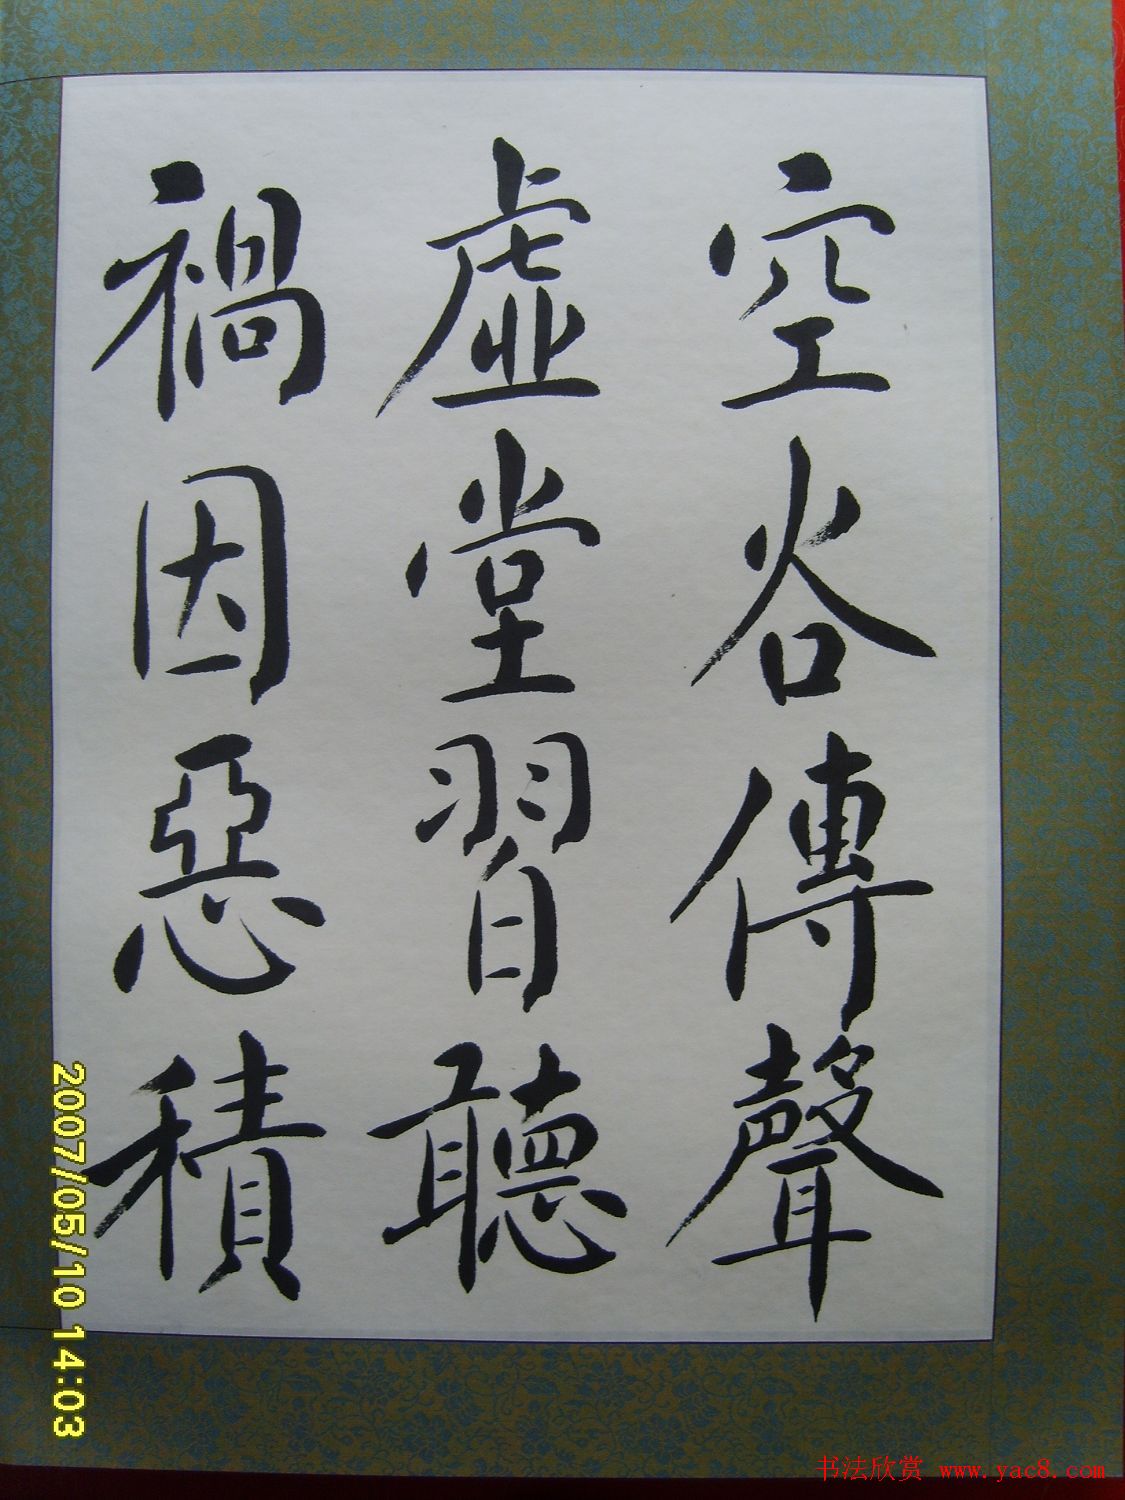 空谷傳聲
虛堂習聽
禍因惡積
2007/05/10 14:03
书法欣赏 www.yac8.com